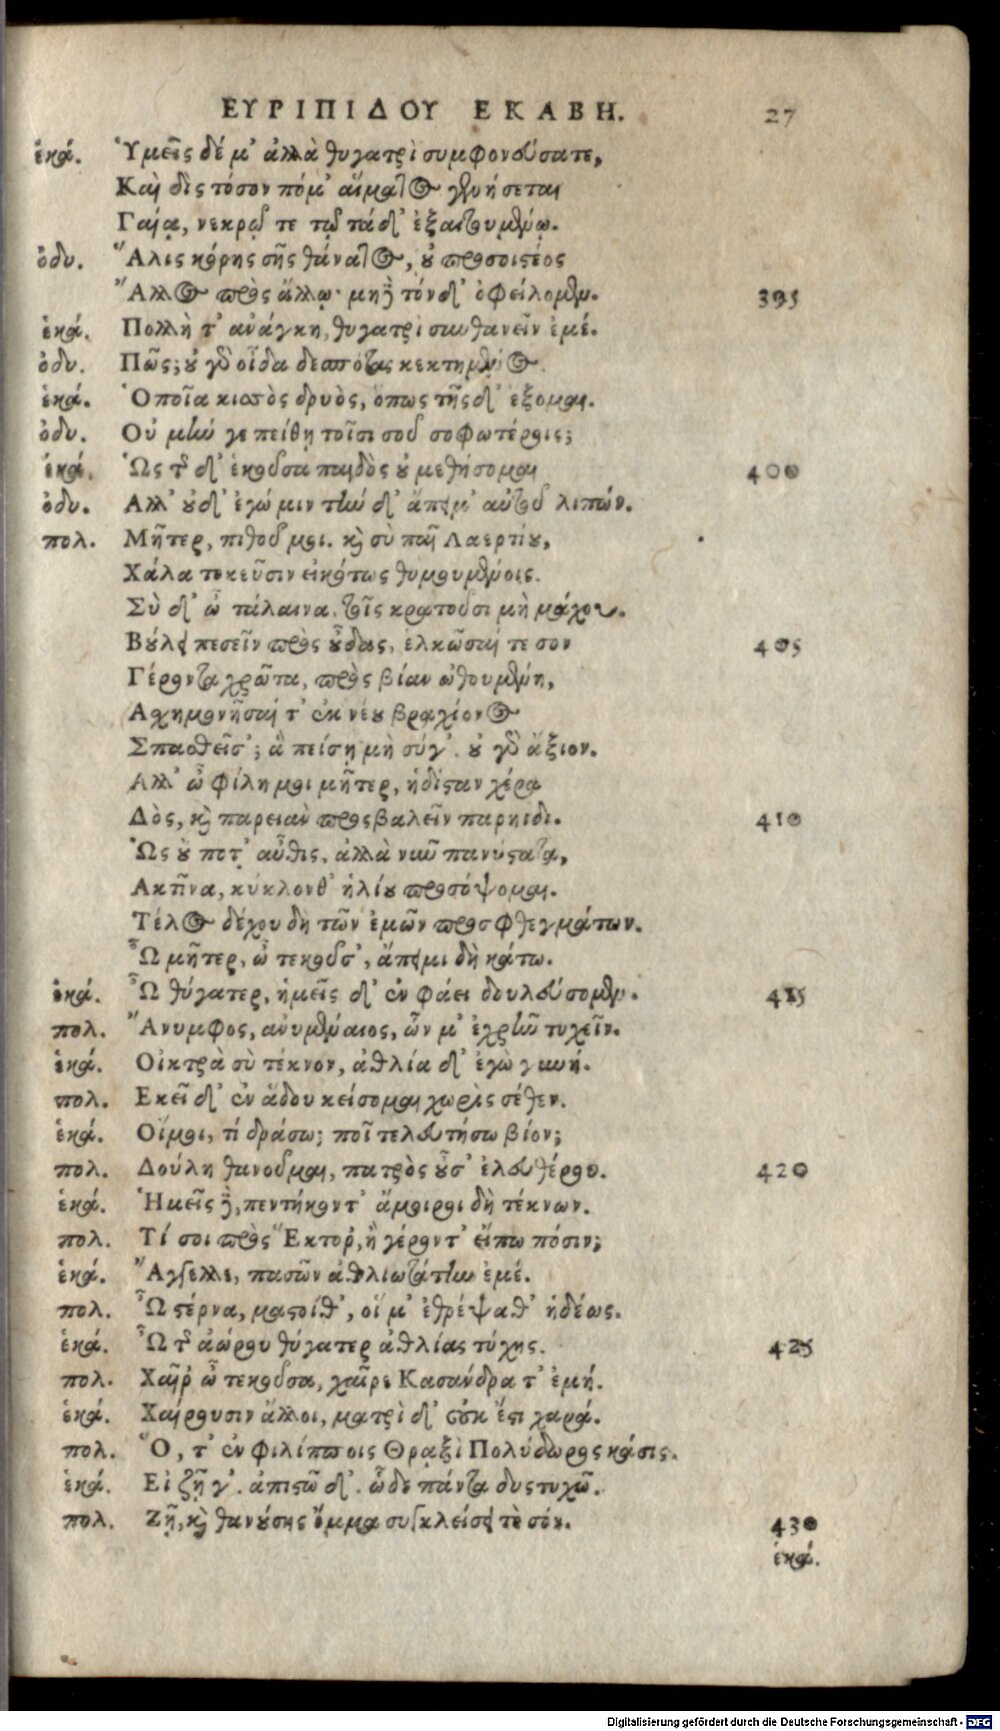 ΕΥΡΙΠΙΔΟΥ ΕΚΑΒΗ. 27
ἑκά. Ὑμεῖς δέ μ' ἀλλὰ θυγατρὶ συμφονεύσατε,
Καὶ δὶς τόσον πόμ' αἵματος γενήσεται
Γαίᾳ, νεκρῷ τε τῷ τάδ' ἐξαιτουμένῳ.
ὀδυ. Ἅλις κόρης σῆς θάνατος, οὐ προσοιστέος
Ἄλλος πρὸς ἄλλῳ· μηδὲ τόνδ' ὀφείλομεν. 395
ἑκά. Πολλή τ' ἀνάγκη, θυγατρὶ συνθανεῖν ἐμέ.
ὀδυ. Πῶς; οὐ γὰρ οἶδα δεσπότας κεκτημένος.
ἑκά. Ὁποῖα κισσὸς δρυὸς, ὅπως τῆσδ' ἕξομαι.
ὀδυ. Οὐ μὴν γε πείθῃ τοῖσι σοῦ σοφωτέροις;
ἑκά. Ὡς τῆσδ' ἑκοῦσα παιδὸς οὐ μεθήσομαι 400
ὀδυ. Ἀλλ' οὐδ' ἐγώ μιν τήνδ' ἄπειμ' αὐτοῦ λιπών.
πολ. Μῆτερ, πιθοῦ μοι. καὶ σὺ παῖ Λαερτίου,
Χάλα τοκεῦσιν εἰκότως θυμουμένοις.
Σὺ δ' ὦ τάλαινα, τοῖς κρατοῦσι μὴ μάχου.
Βούλει πεσεῖν πρὸς οὖδας, ἑλκῶσαί τε σον 405
Γέροντα χρῶτα, πρὸς βίαν ὠθουμένη,
Ἀσχημονῆσαί τ' ἐκ νέου βραχίονος
Σπασθεῖσ'; ἃ πείσῃ μὴ σύγ'. οὐ γὰρ ἄξιον.
Ἀλλ' ὦ φίλη μοι μῆτερ, ἡδίσταν χέρα
Δὸς, καὶ παρειὰν προσβαλεῖν παρηίδι. 410
Ὡς οὔ ποτ' αὖθις, ἀλλὰ νῦν πανύστατα,
Ἀκτῖνα, κύκλονθ' ἡλίου προσόψομαι.
Τέλος δέχου δὴ τῶν ἐμῶν προσφθεγμάτων.
Ὦ μῆτερ, ὦ τεκοῦσ', ἄπειμι δὴ κάτω.
ἑκά. Ὦ θύγατερ, ἡμεῖς δ' ἐν φάει δουλεύσομεν. 415
πολ. Ἄνυμφος, ἀνυμέναιος, ὧν μ' ἐχρῆν τυχεῖν.
ἑκά. Οἰκτρὰ σὺ τέκνον, ἀθλία δ' ἐγὼ γυνή.
πολ. Ἐκεῖ δ' ἐν ᾅδου κείσομαι χωρὶς σέθεν.
ἑκά. Οἴμοι, τί δράσω; ποῖ τελευτήσω βίον;
πολ. Δούλη θανοῦμαι, πατρὸς οὖσ' ἐλευθέρου. 420
ἑκά. Ἡμεῖς δὲ, πεντήκοντ' ἄμοιροι δὴ τέκνων.
πολ. Τί σοι πρὸς Ἕκτορ', ἢ γέροντ' εἴπω πόσιν;
ἑκά. Ἄγγελλε, πασῶν ἀθλιωτάτην ἐμέ.
πολ. Ὦ στέρνα, μαστοίθ', οἵ μ' ἐθρέψαθ' ἡδέως.
ἑκά. Ὦ τῆς ἀώρου θύγατερ ἀθλίας τύχης. 425
πολ. Χαῖρ' ὦ τεκοῦσα, χαῖρε Κασάνδρα τ' ἐμή.
ἑκά. Χαίρουσιν ἄλλοι, ματρὶ δ' οὐκ ἔστι χαρά.
πολ. Ὅ, τ' ἐν φιλίπποις Θρῃξὶ Πολύδωρος κάσις.
ἑκά. Εἰ ζῇ γ'. ἀπιστῶ δ'. ὧδε πάντα δυστυχῶ.
πολ. Ζῇ, καὶ θανούσης ὄμμα συγκλείσει τὸ σόν. 430
ἑκά.
Digitalisierung gefördert durch die Deutsche Forschungsgemeinschaft - DFG